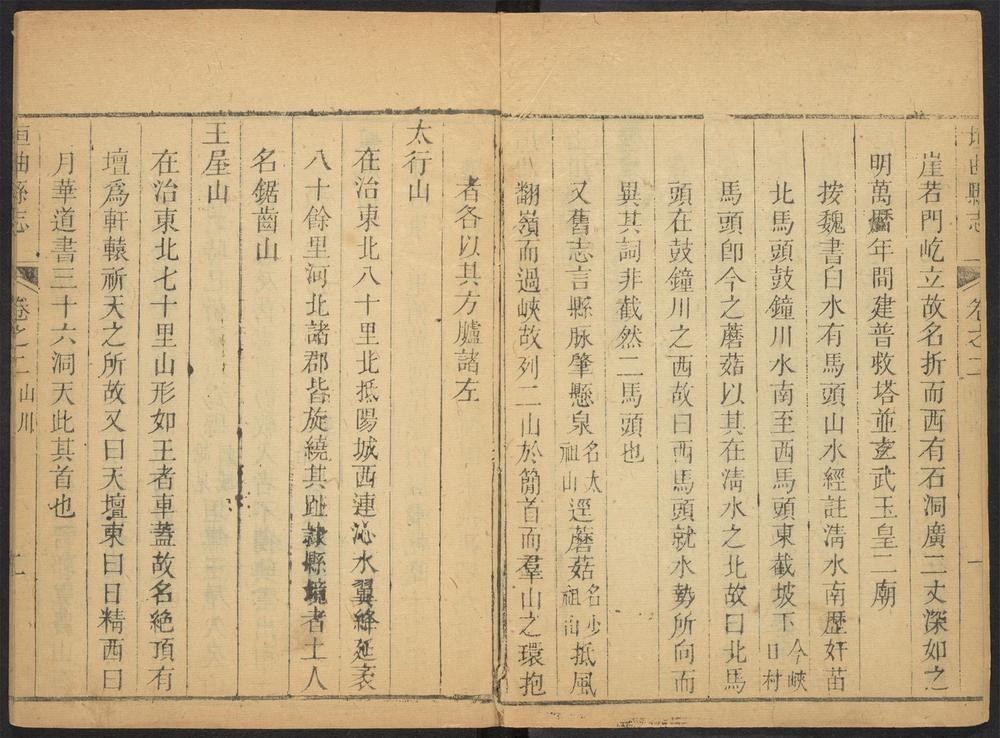 垣曲縣志
卷之二
一
崖若門屹立故名折而西有石洞廣三丈深如之
明萬曆年間建普救塔並玄武玉皇二廟
按魏書白水有馬頭山水經註清水南歷奸苗
北馬頭鼓鐘川水南至西馬頭東截坡下今峽曰村
馬頭卽今之蘑菇以其在清水之北故曰北馬
頭在鼓鐘川之西故曰西馬頭就水勢所向而
異其詞非截然二馬頭也
又舊志言縣脉肇懸泉名太祖山逕蘑菇名少祖山抵風
翻嶺而過峽故列二山於簡首而羣山之環抱
者各以其方臚諸左
太行山
在治東北八十里北抵陽城西連沁水翼絳延袤
八十餘里河北諸郡皆旋繞其趾隸縣境者土人
名鋸齒山
王屋山
在治東北七十里山形如王者車蓋故名絶頂有
壇爲軒轅祈天之所故又曰天壇東曰日精西曰
月華道書三十六洞天此其首也
垣曲縣志
卷之二
山川
二